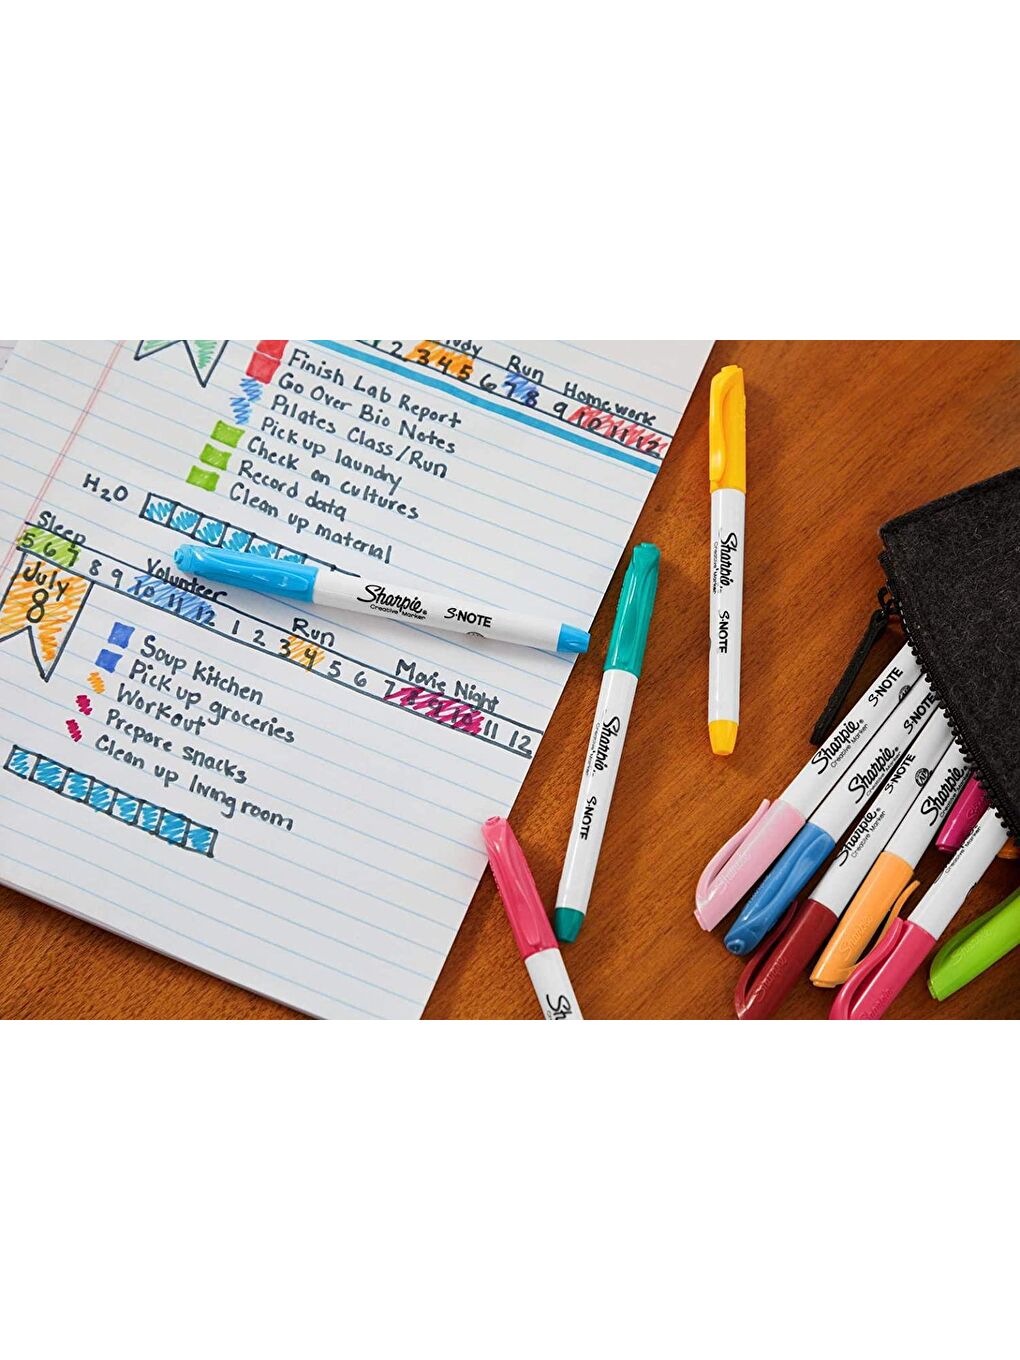 Run
Homework
2 3 4 5 6 7 8 9 10 11 12
Finish Lab Report
Go Over Bio Notes
Pilates Class/Run
Pick up laundry
Check on cultures
Record data
Clean up material
H2O
Sleep
Volunteer
Run
Movie Night
5 6 7 8 9 10 11 12 1 2 3 4 5 6 7 8 9 10 11 12
July
8
Soup Kitchen
Pick up groceries
Workout
Prepare snacks
Clean up living room
Sharpie®
Creative Marker
S·NOTE
Sharpie
Creative Marker
S·NOTE
Sharpie
Creative Marker
S·NOTE
Sharpie
Creative Marker
S·NOTE
Sharpie
Creative Marker
S·NOTE
Sharpie
Creative Marker
S·NOTE
Sharpie
Creative Marker